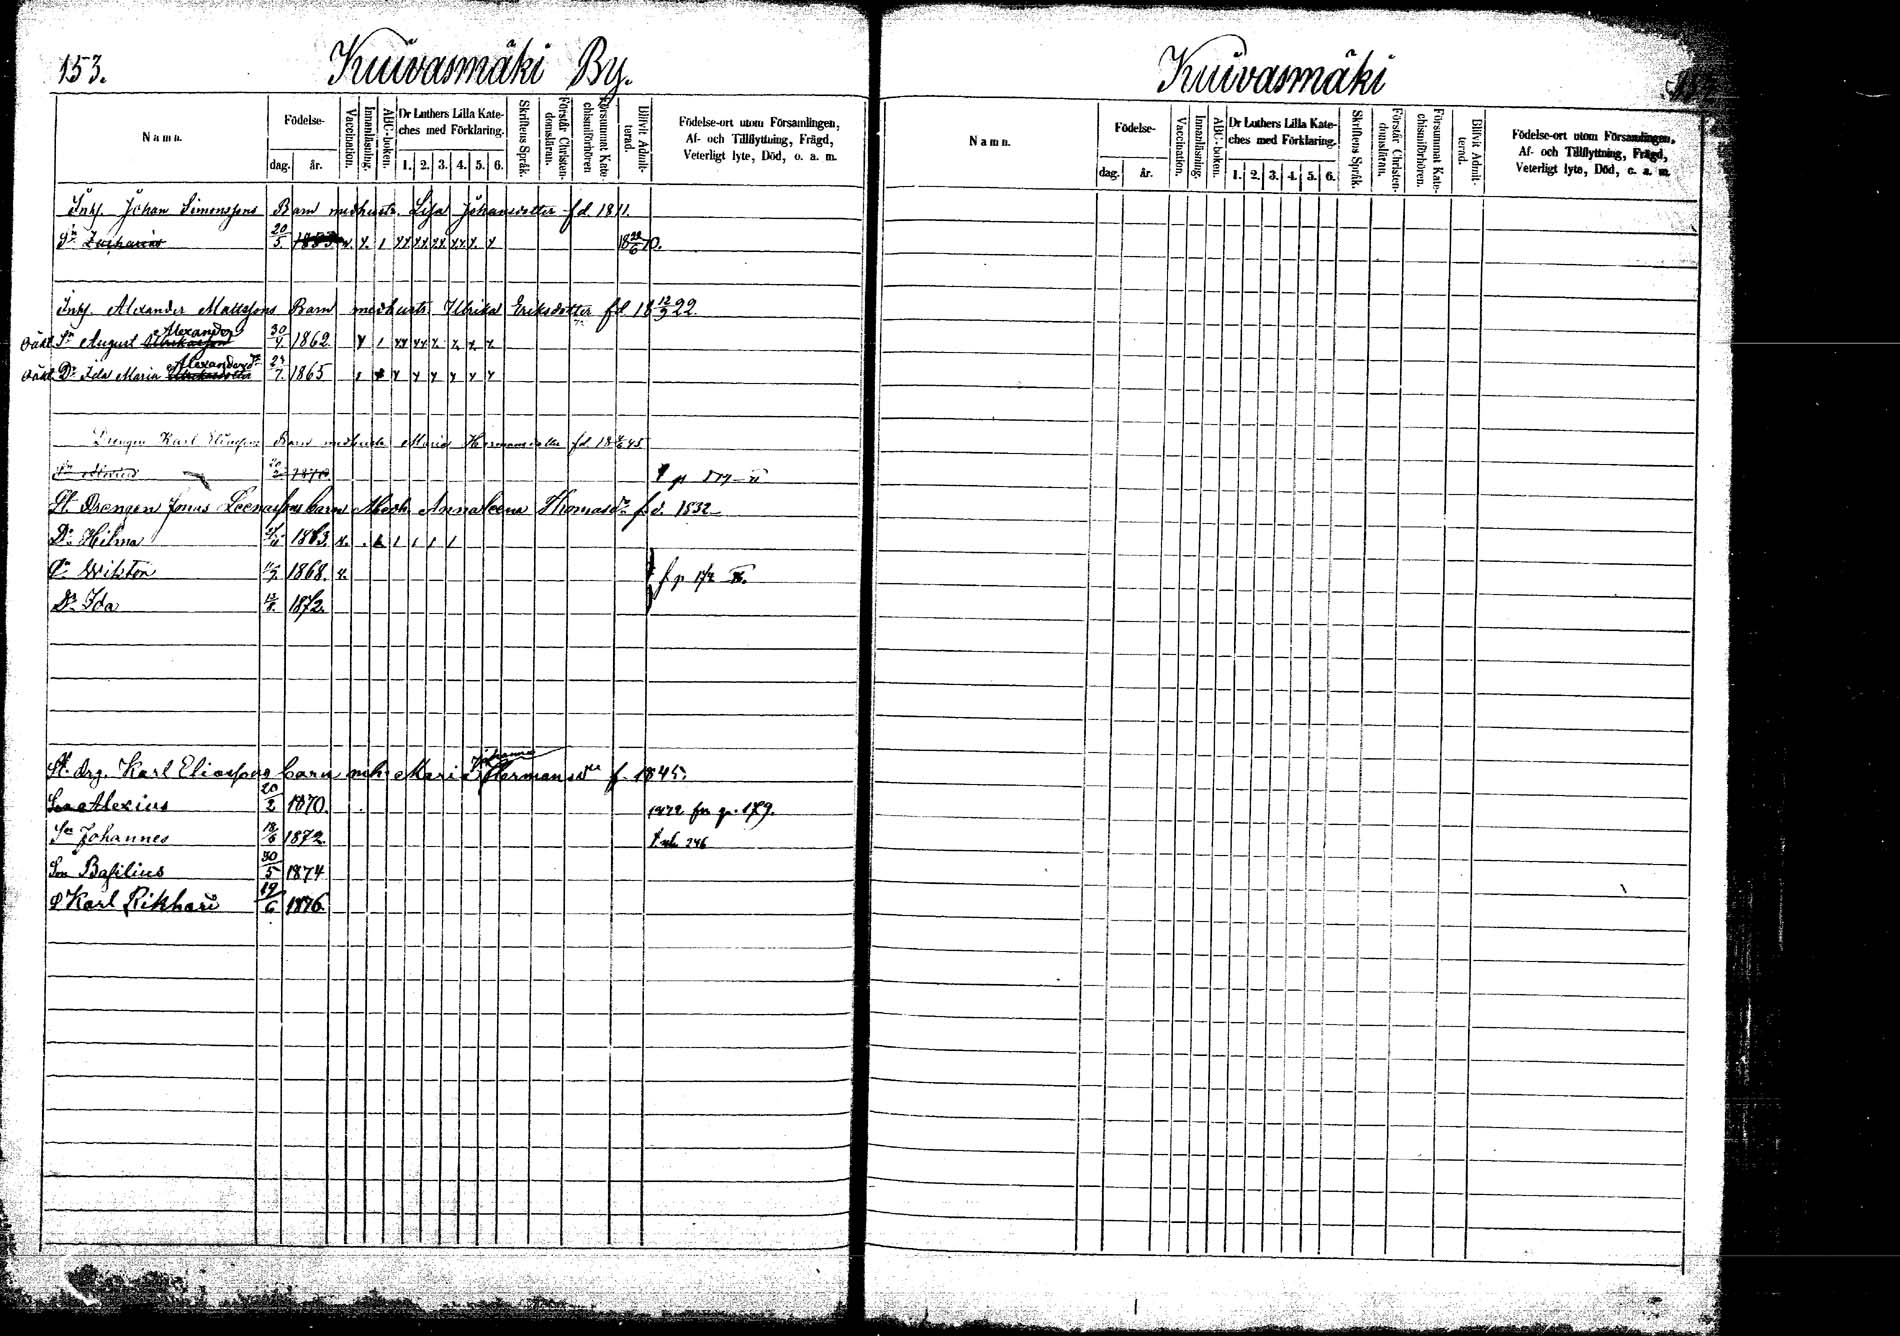 153.
Kuivasmäki By.
Namn.
Födelse-
dag. år.
Vaccination.
Innanläsning.
ABC-boken.
Dr Luthers Lilla Kate-
ches med Förklaring.
1. 2. 3. 4. 5. 6.
Skriftens Språk.
Förstår Christen-
domsläran.
Försummat Kate-
chismiförhören
Blifvit Admit-
terad.
Födelse-ort utom Församlingen,
Af- och Tillflyttning, Frägd,
Veterligt lyte, Död, o. a. m.
Inh. Johan Simonssons Barn med hustr. Lisa Johansdotter fd. 1811.
Sn Zacharias 20/5 1853 x. x. 1 xx xx xx xx x. x 18 22/6 70.
Inh. Alexander Mattssons Barn med hustr. Ulrika Eriksdotter fd 18 12/9 22.
Alexanders
oäkt Sn August Ulrikasson 30/4. 1862. x 1 xx xx x. x. x. x.
Alexandersdr
oäkt Dr Ida Maria Ulrikasdotter 24/7. 1865 x x x x x x
Drengen Karl Eliassons Barn med hustr. Maria Hermansdotter fd. 18 45
Sn 20/2 1870 p
St. Drengen Jonas Leenassons barn Med h. Anna Leena Thomasdr fd. 1832
Dr Hilma 1863. x. 1 1 1 1
Sn Wiktor 1868. x. f p
Dr Ida 12/8. 1872.
Johanna
St. drg. Karl Eliassons barn mh. Maria Hermansdr f. 1845.
Son Alexius 20/2 1870. 1872 fr p. 179.
Sn Johannes 18/6 1872. 246
Son Basilius 30/5 1874
S Karl Rikhard 19/6 1876
Kuivasmäki
Namn.
Födelse-
dag. år.
Vaccination.
Innanläsning.
ABC-boken.
Dr Luthers Lilla Kate-
ches med Förklaring.
1. 2. 3. 4. 5. 6.
Skriftens Språk.
Förstår Christen-
domsläran.
Försummat Kate-
chismiförhören.
Blifvit Admit-
terad.
Födelse-ort utom Församlingen,
Af- och Tillflyttning, Frägd,
Veterligt lyte, Död, o. a. m.